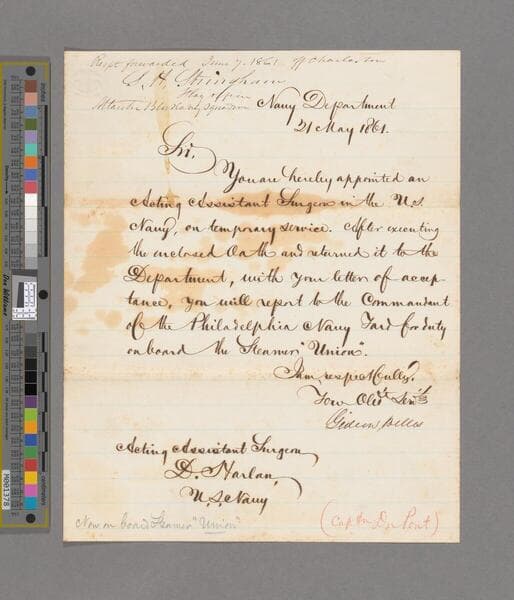 Rec'd & forwarded June 7. 1861. off Charleston
S. H. Stringham
Flag officer
Atlantic Blockading Squadron
Navy Department
21 May 1861.
Sir,
You are hereby appointed an
Acting Assistant Surgeon in the U.S.
Navy, on temporary service. After executing
the enclosed Oath and returned it to the
Department, with your letter of accep-
tance, you will report to the Commandant
of the Philadelphia Navy Yard for duty
on board the Steamer "Union".
I am, respectfully,
Your Obdt. Servt.
Gideon Welles
Acting Assistant Surgeon
D. Harlan,
U.S. Navy
Now on board Steamer "Union"
(Capt. Du Pont)
inches
centimeters
Don Williams
M001378